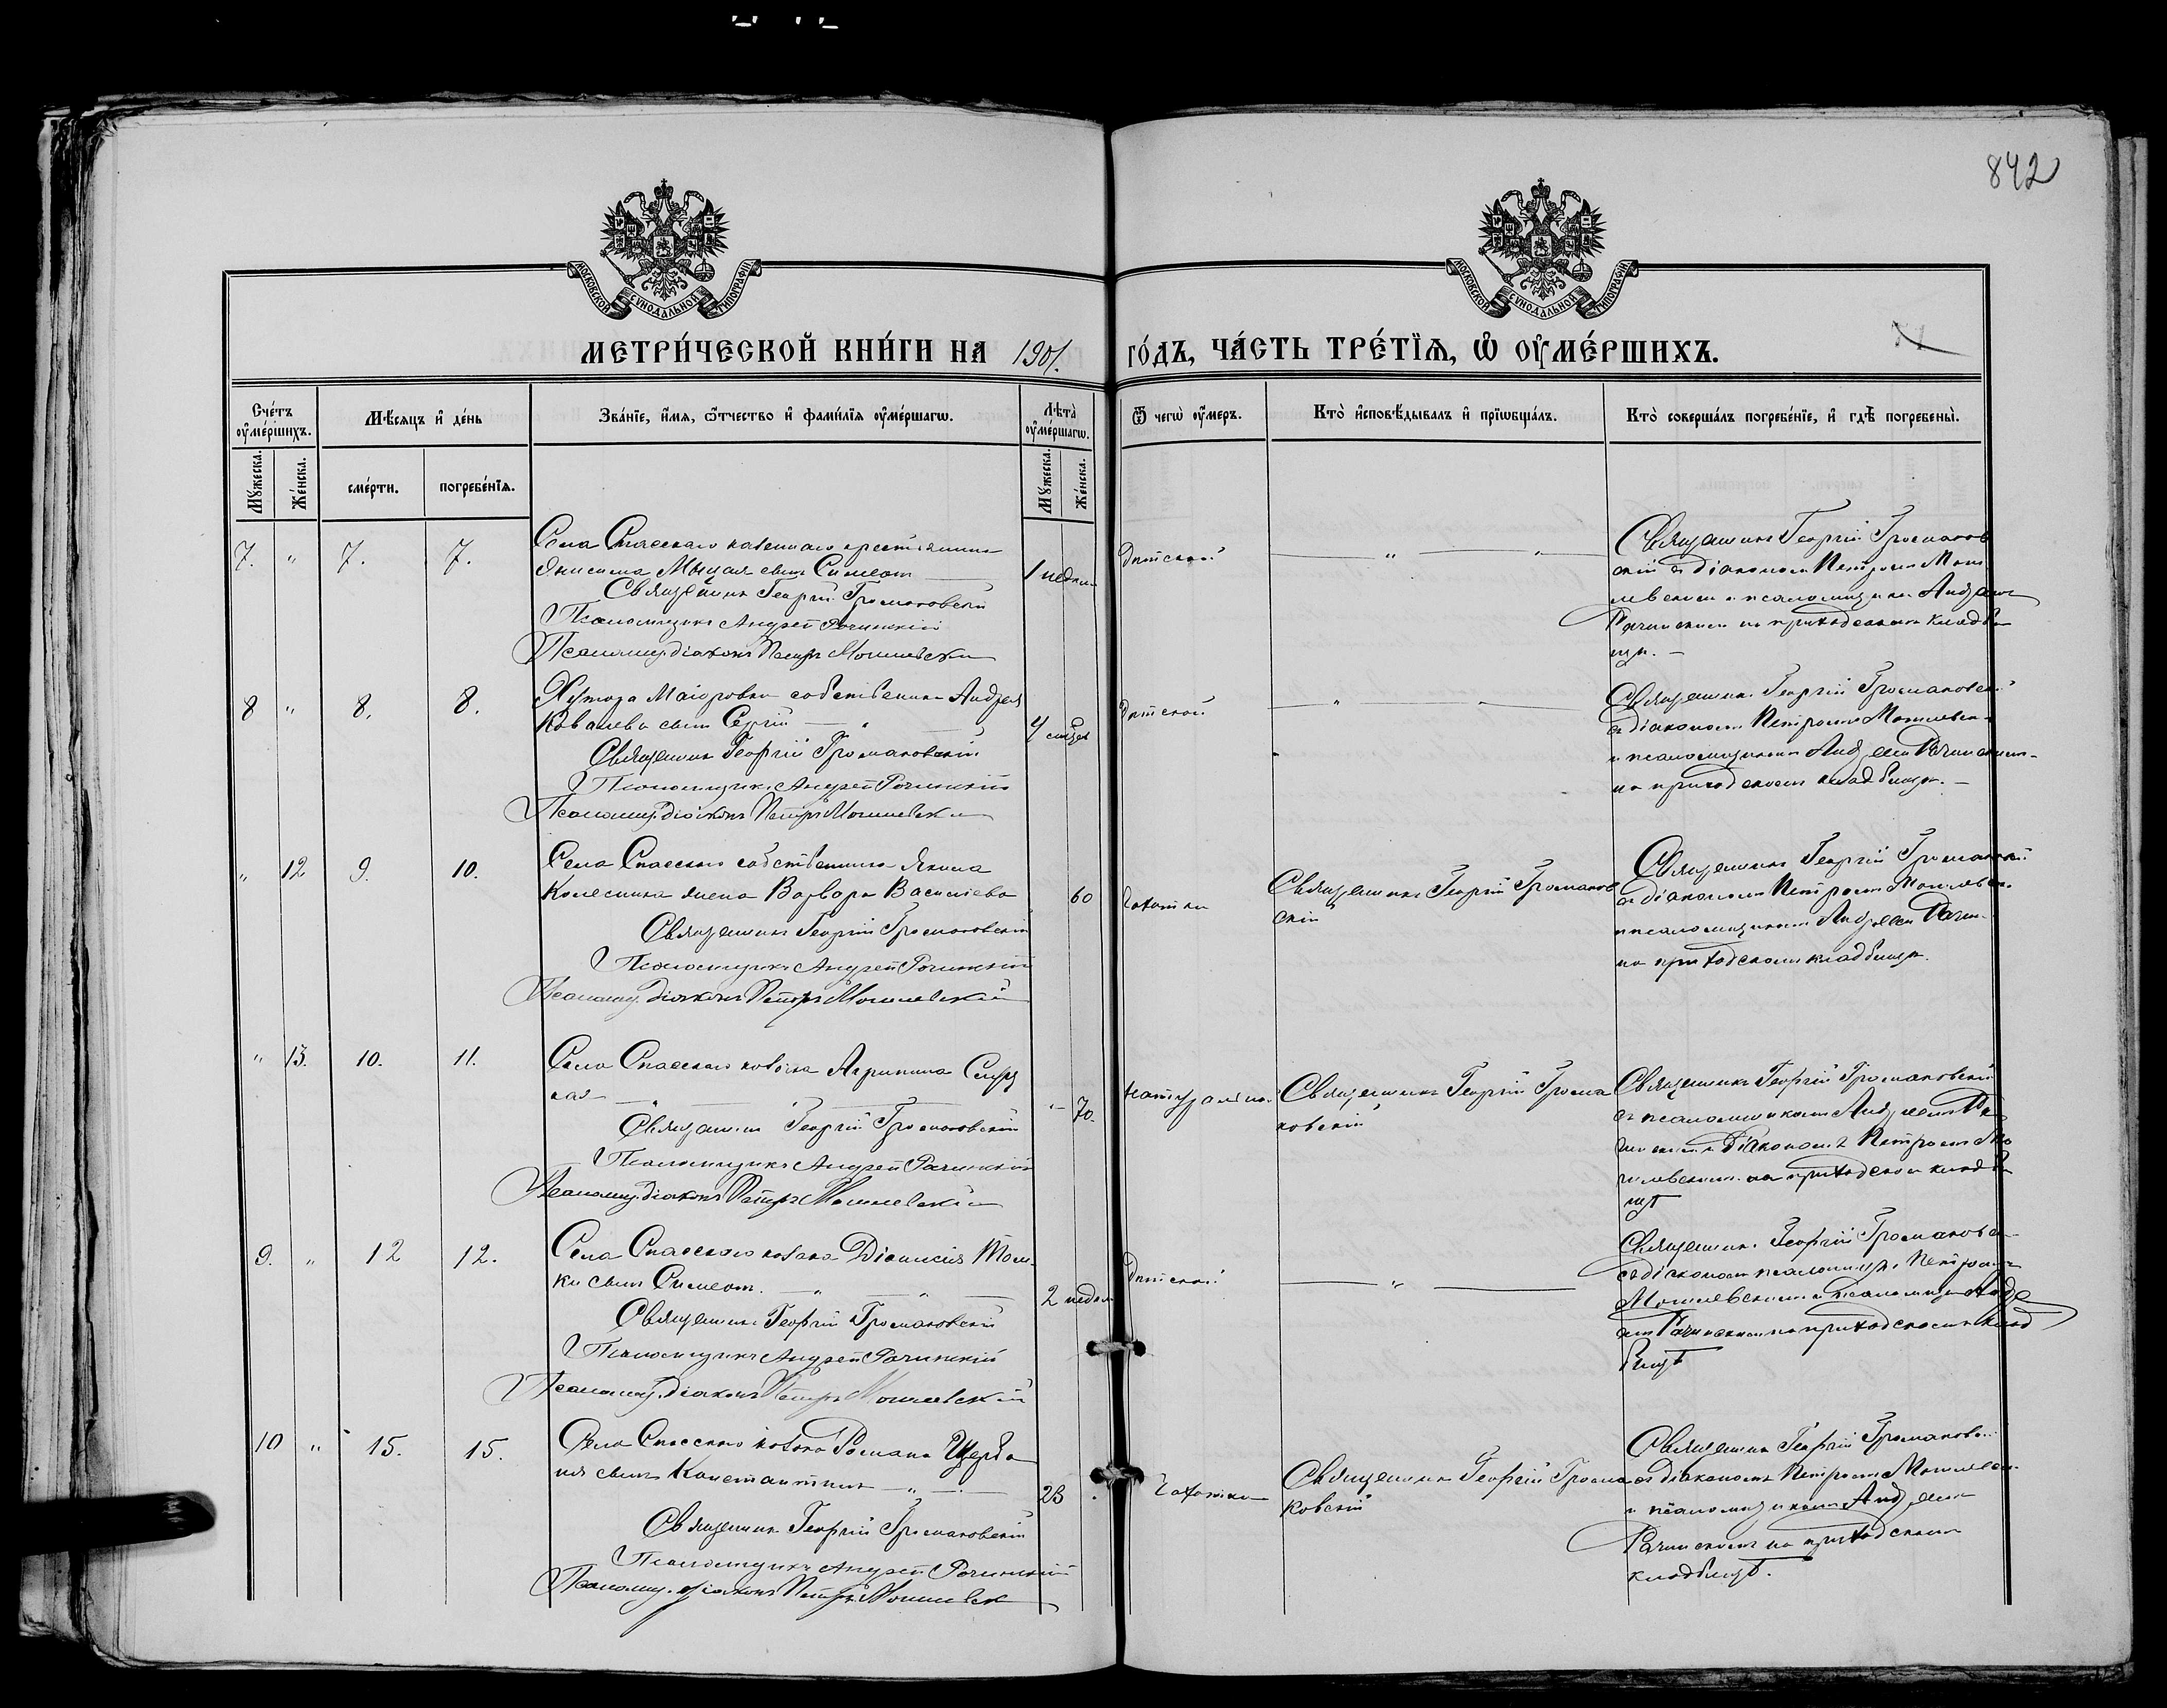 842
МОСКОВСКОЙ СѴНОДАЛЬНОЙ ТИПОГРАФІИ
МОСКОВСКОЙ СѴНОДАЛЬНОЙ ТИПОГРАФІИ
МЕТРИ́ЧЕСКОЙ КНИ́ГИ НА 1901. ГО́ДЪ, ЧА́СТЬ ТРЕ́ТЇѦ, Ѽ ОУ҆МЕ́РШИХЪ.
Сче́тъ оу҆ме́ршихъ.
Мѣ́сѧцъ и҆ де́нь
Зва́нїе, и҆́мѧ, ѻ҆́тчество и҆ фами́лїѧ оу҆ме́ршагѡ.
Лѣ́та оу҆ме́ршагѡ.
Ѿ чегѡ̀ оу҆́меръ.
Кто̀ и҆сповѣ́дывалъ и҆ прїѡбща́лъ.
Кто̀ соверша́лъ погребе́нїе, и҆ гдѣ̀ погребены̀.
Мꙋ́жеска.
Же́нска.
сме́рти.
погребе́нїѧ.
Мꙋ́жеска.
Же́нска.
7. " 7. 7.
Села Спасскаго казеннаго крестьянина
сынъ Симеон
Священникъ Георгій Громаковскій
Псаломщикъ Андрей Рачинскій
Псаломщ. діаконъ Петръ Могилевскій
1 недели
Дѣтской
Священникъ Георгій Громаков
скій съ діакономъ Петромъ Моги
левским и псаломщиком Андреем
Рачинским на приходском кладби
щѣ.
8 " 8. 8.
Хутора Маіоровки собственника Андрея
Ковалева сынъ Сергій
Священникъ Георгій Громаковскій
Псаломщикъ Андрей Рачинскій
Псаломщ. діаконъ Петръ Могилевскій
4
Дѣтской
Священникъ Георгій Громаковскій
съ діакономъ Петромъ Могилевск
и псаломщиком Андреем Рачинским
на приходском кладбищѣ.
" 12 9. 10.
Села Спасскаго собственника Якима
Колесника жена Варвара Васильева
Священникъ Георгій Громаковскій
Псаломщикъ Андрей Рачинскій
Псаломщ. діаконъ Петръ Могилевскій
60
Чахотки
Священникъ Георгій Громаков
скій
Священникъ Георгій Громаковскій
съ діакономъ Петромъ Могилевск.
и псаломщиком Андреем Рачин.
на приходском кладбищѣ.
" 13. 10. 11.
Села Спасскаго козачка Агрипина
кая
Священникъ Георгій Громаковскій
Псаломщикъ Андрей Рачинскій
Псаломщ. діаконъ Петръ Могилевскій
70.
натурально
Священникъ Георгій Грома
ковскій
Священникъ Георгій Громаковскій
съ псаломщиком Андреем Ра
чинским и діакономъ Петромъ Мо
гилевским на приходском кладби
щѣ
9. " 12 12.
Села Спасскаго козака Діонисія
ки сынъ Симеон.
Священникъ Георгій Громаковскій
Псаломщикъ Андрей Рачинскій
Псаломщ. діаконъ Петръ Могилевскій
2 недели
Дѣтской
Священникъ Георгій Громаковск
съ діакономъ псаломщик. Петромъ
Могилевским и псаломщик Андре
ем Рачинским на приходском клад
бищѣ
10 " 15. 15.
Села Спасскаго козака Романа Щерба
ня сынъ Константинъ
Священникъ Георгій Громаковскій
Псаломщикъ Андрей Рачинскій
Псаломщ. діаконъ Петръ Могилевск
23
Чахотки
Священникъ Георгій Грома
ковскій
Священникъ Георгій Громаковск
съ діакономъ Петромъ Могилевск.
и псаломщиком Андреем
Рачинским на приходском
кладбищѣ.